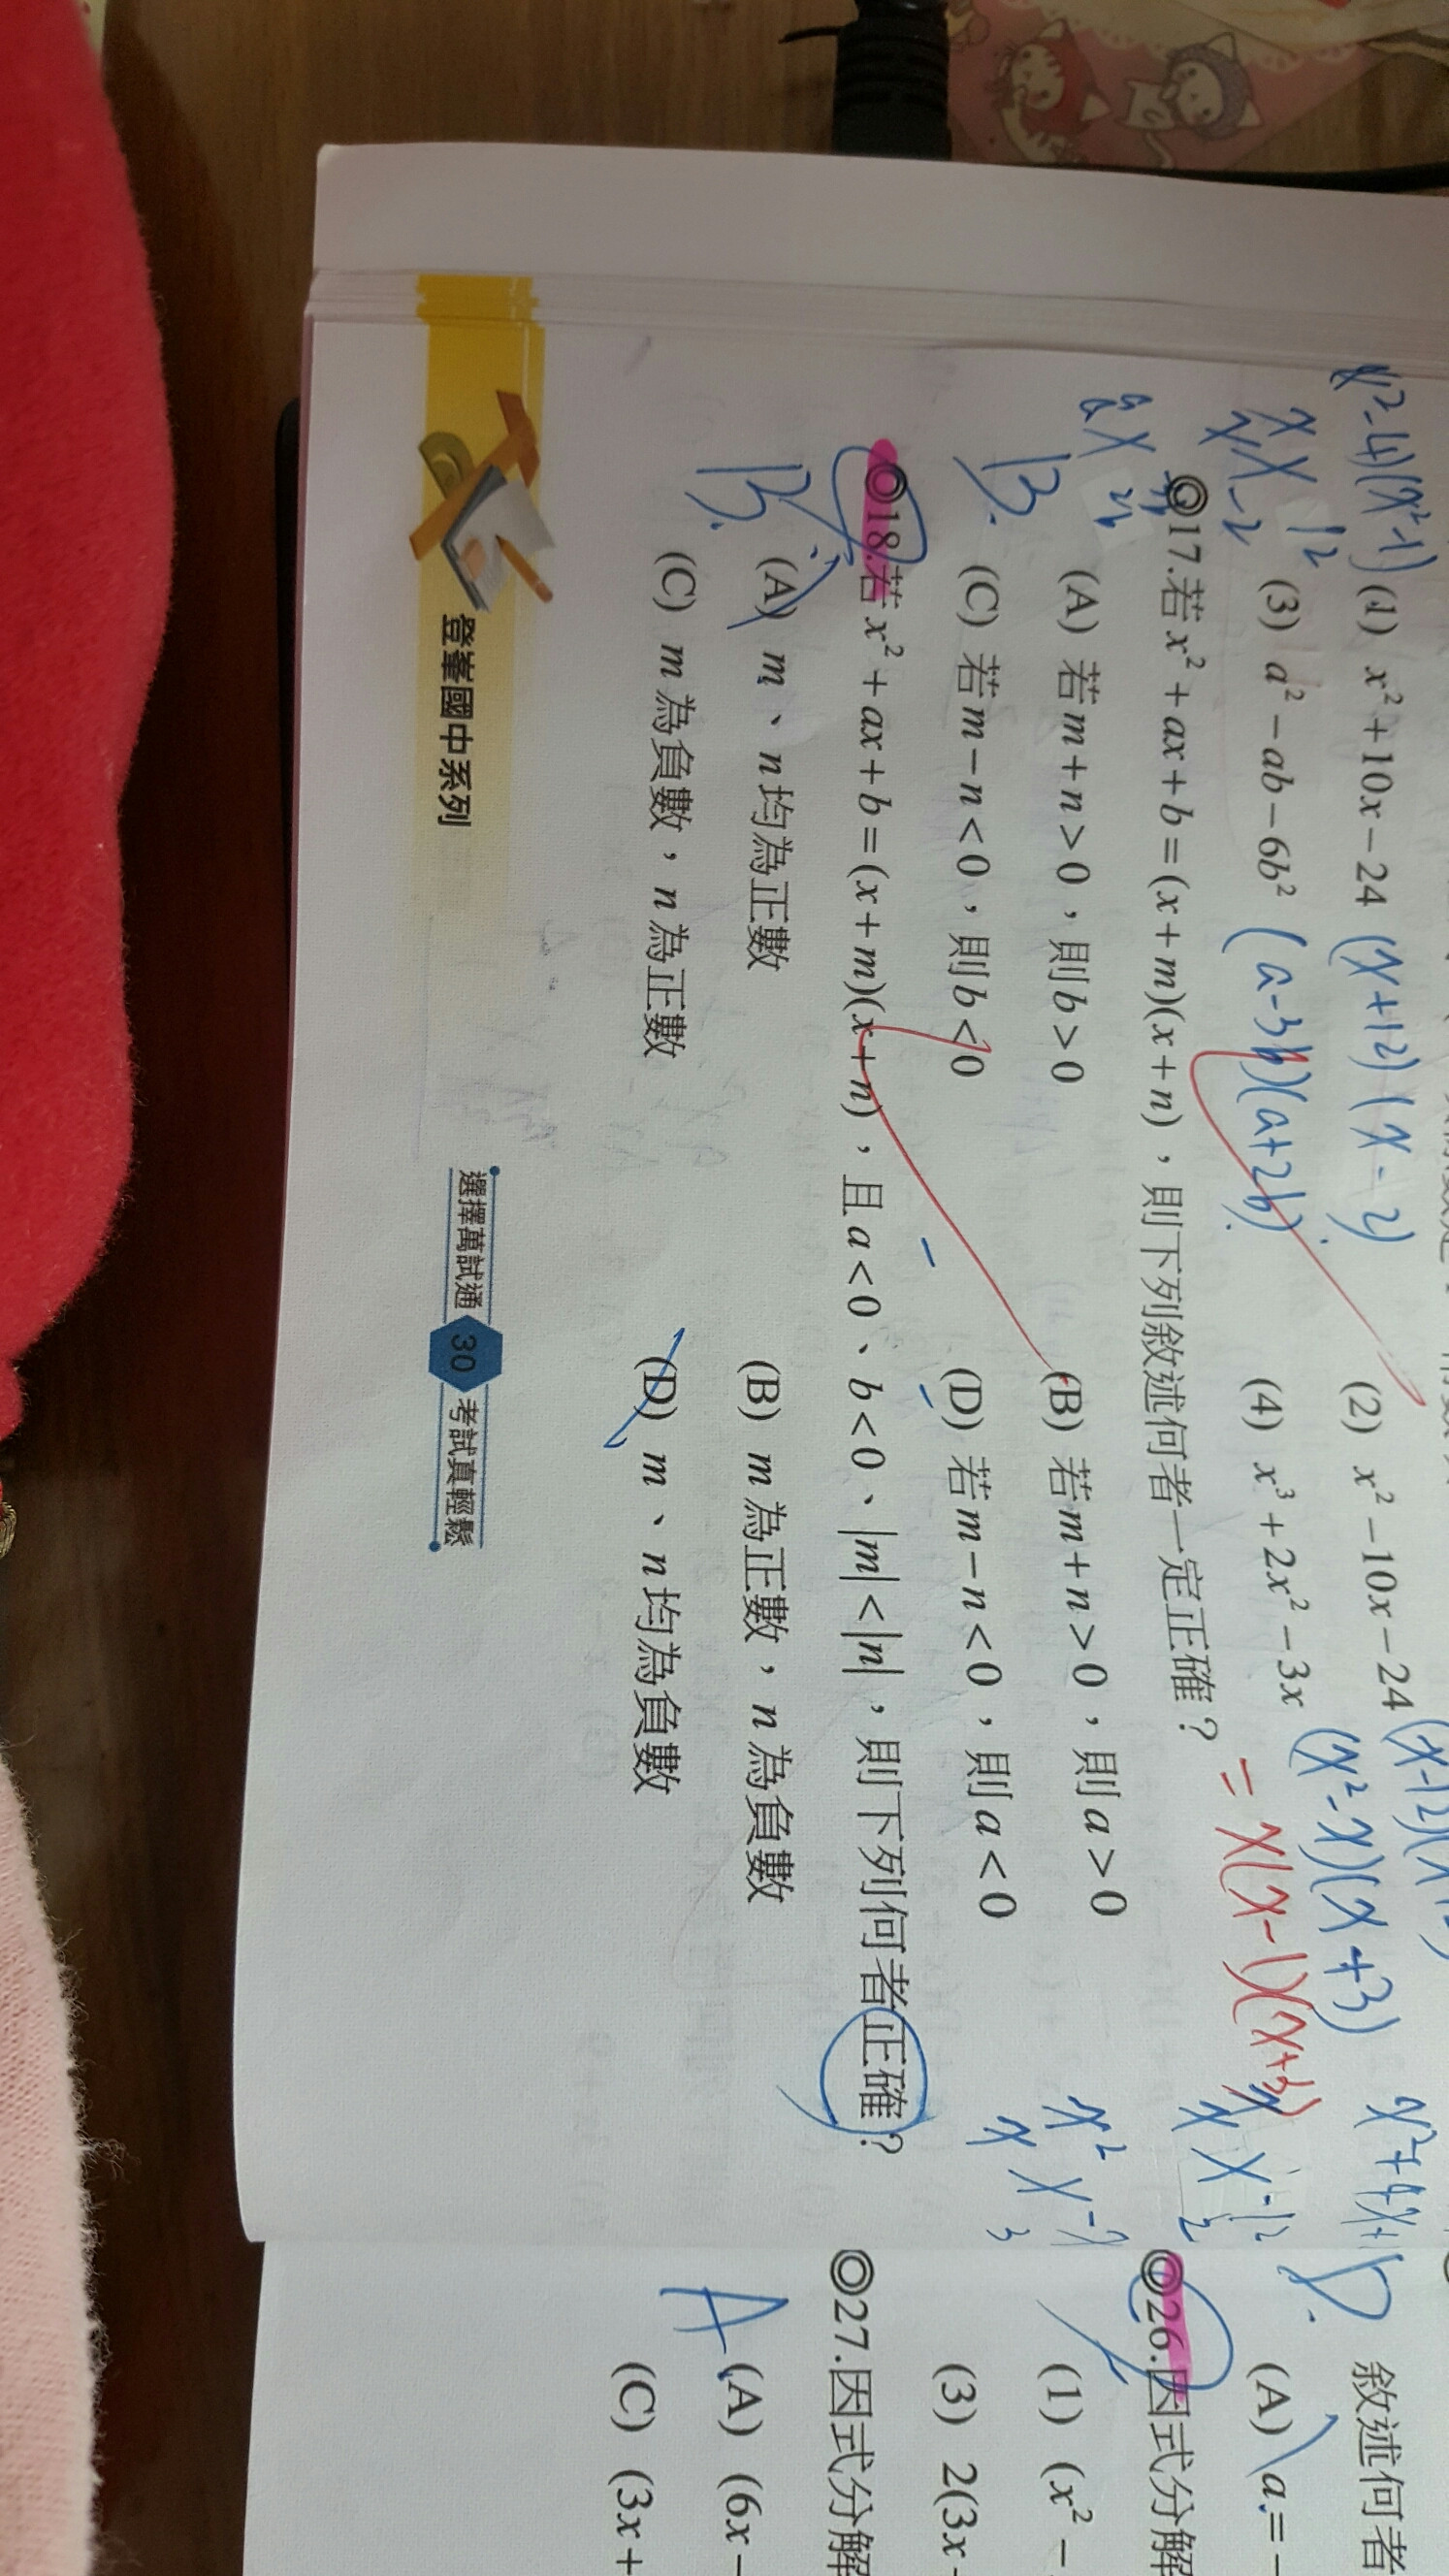 x²-4)(x²-1)
(1) x²+10x-24 (x+12)(x-2)
(2) x²-10x-24
(3) a²-ab-6b² (a-3b)(a+2b)
(4) x³+2x²-3x (x²-x)(x+3)
= x(x-1)(x+3)
◎17.若x²+ax+b=(x+m)(x+n),則下列敘述何者一定正確?
(A) 若m+n>0,則b>0
(B) 若m+n>0,則a>0
B.
(C) 若m-n<0,則b<0
(D) 若m-n<0,則a<0
◎18.若x²+ax+b=(x+m)(x+n),且a<0、b<0、|m|<|n|,則下列何者正確?
B.
(A) m、n均為正數
(B) m為正數,n為負數
(C) m為負數,n為正數
(D) m、n均為負數
登峯國中系列
選擇萬試通 30 考試真輕鬆
敘述何者
(A) a=-
◎26.因式分解
(1) (x²-
(3) 2(3x-
◎27.因式分解
A
(A) (6x-
(C) (3x+